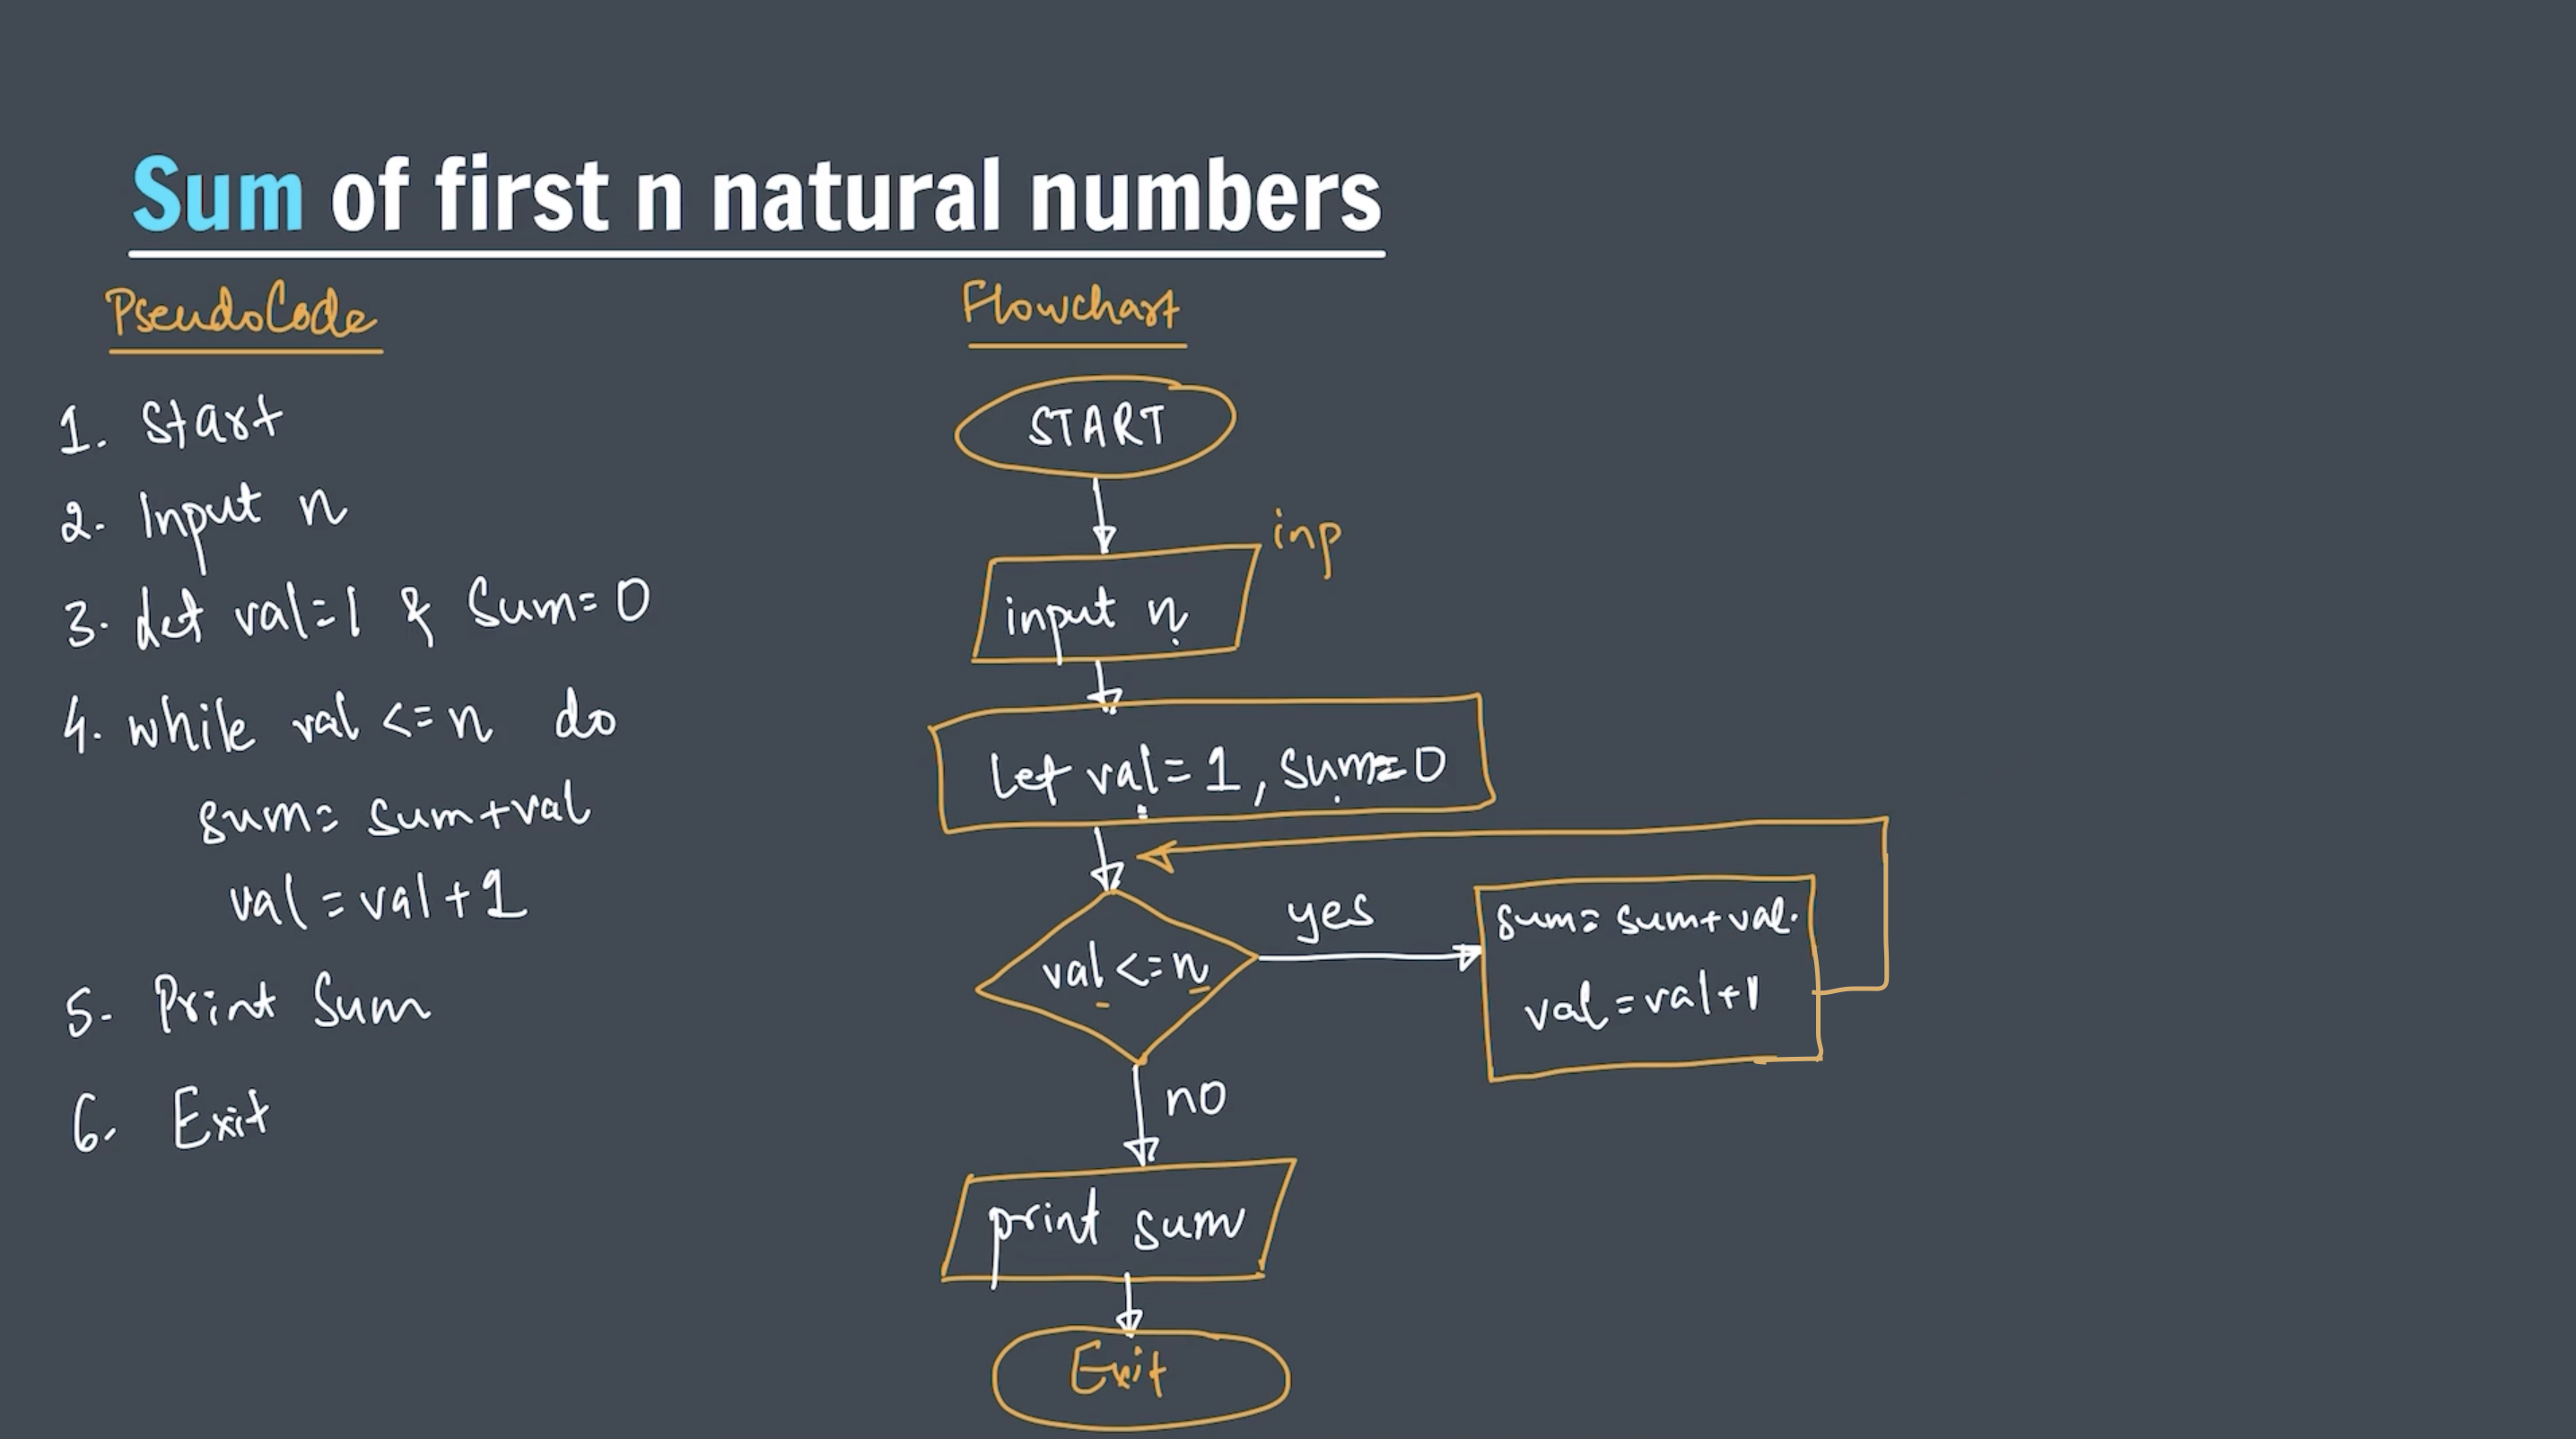 Sum of first n natural numbers
PseudoCode
1. Start
2. Input n
3. Let val=1 & Sum=0
4. while val <= n do
sum = sum+val
val = val + 1
5. Print Sum
6. Exit
Flowchart
START
inp
input n
Let val = 1, sum = 0
val <= n
yes
sum = sum + val.
val = val + 1
no
print sum
Exit